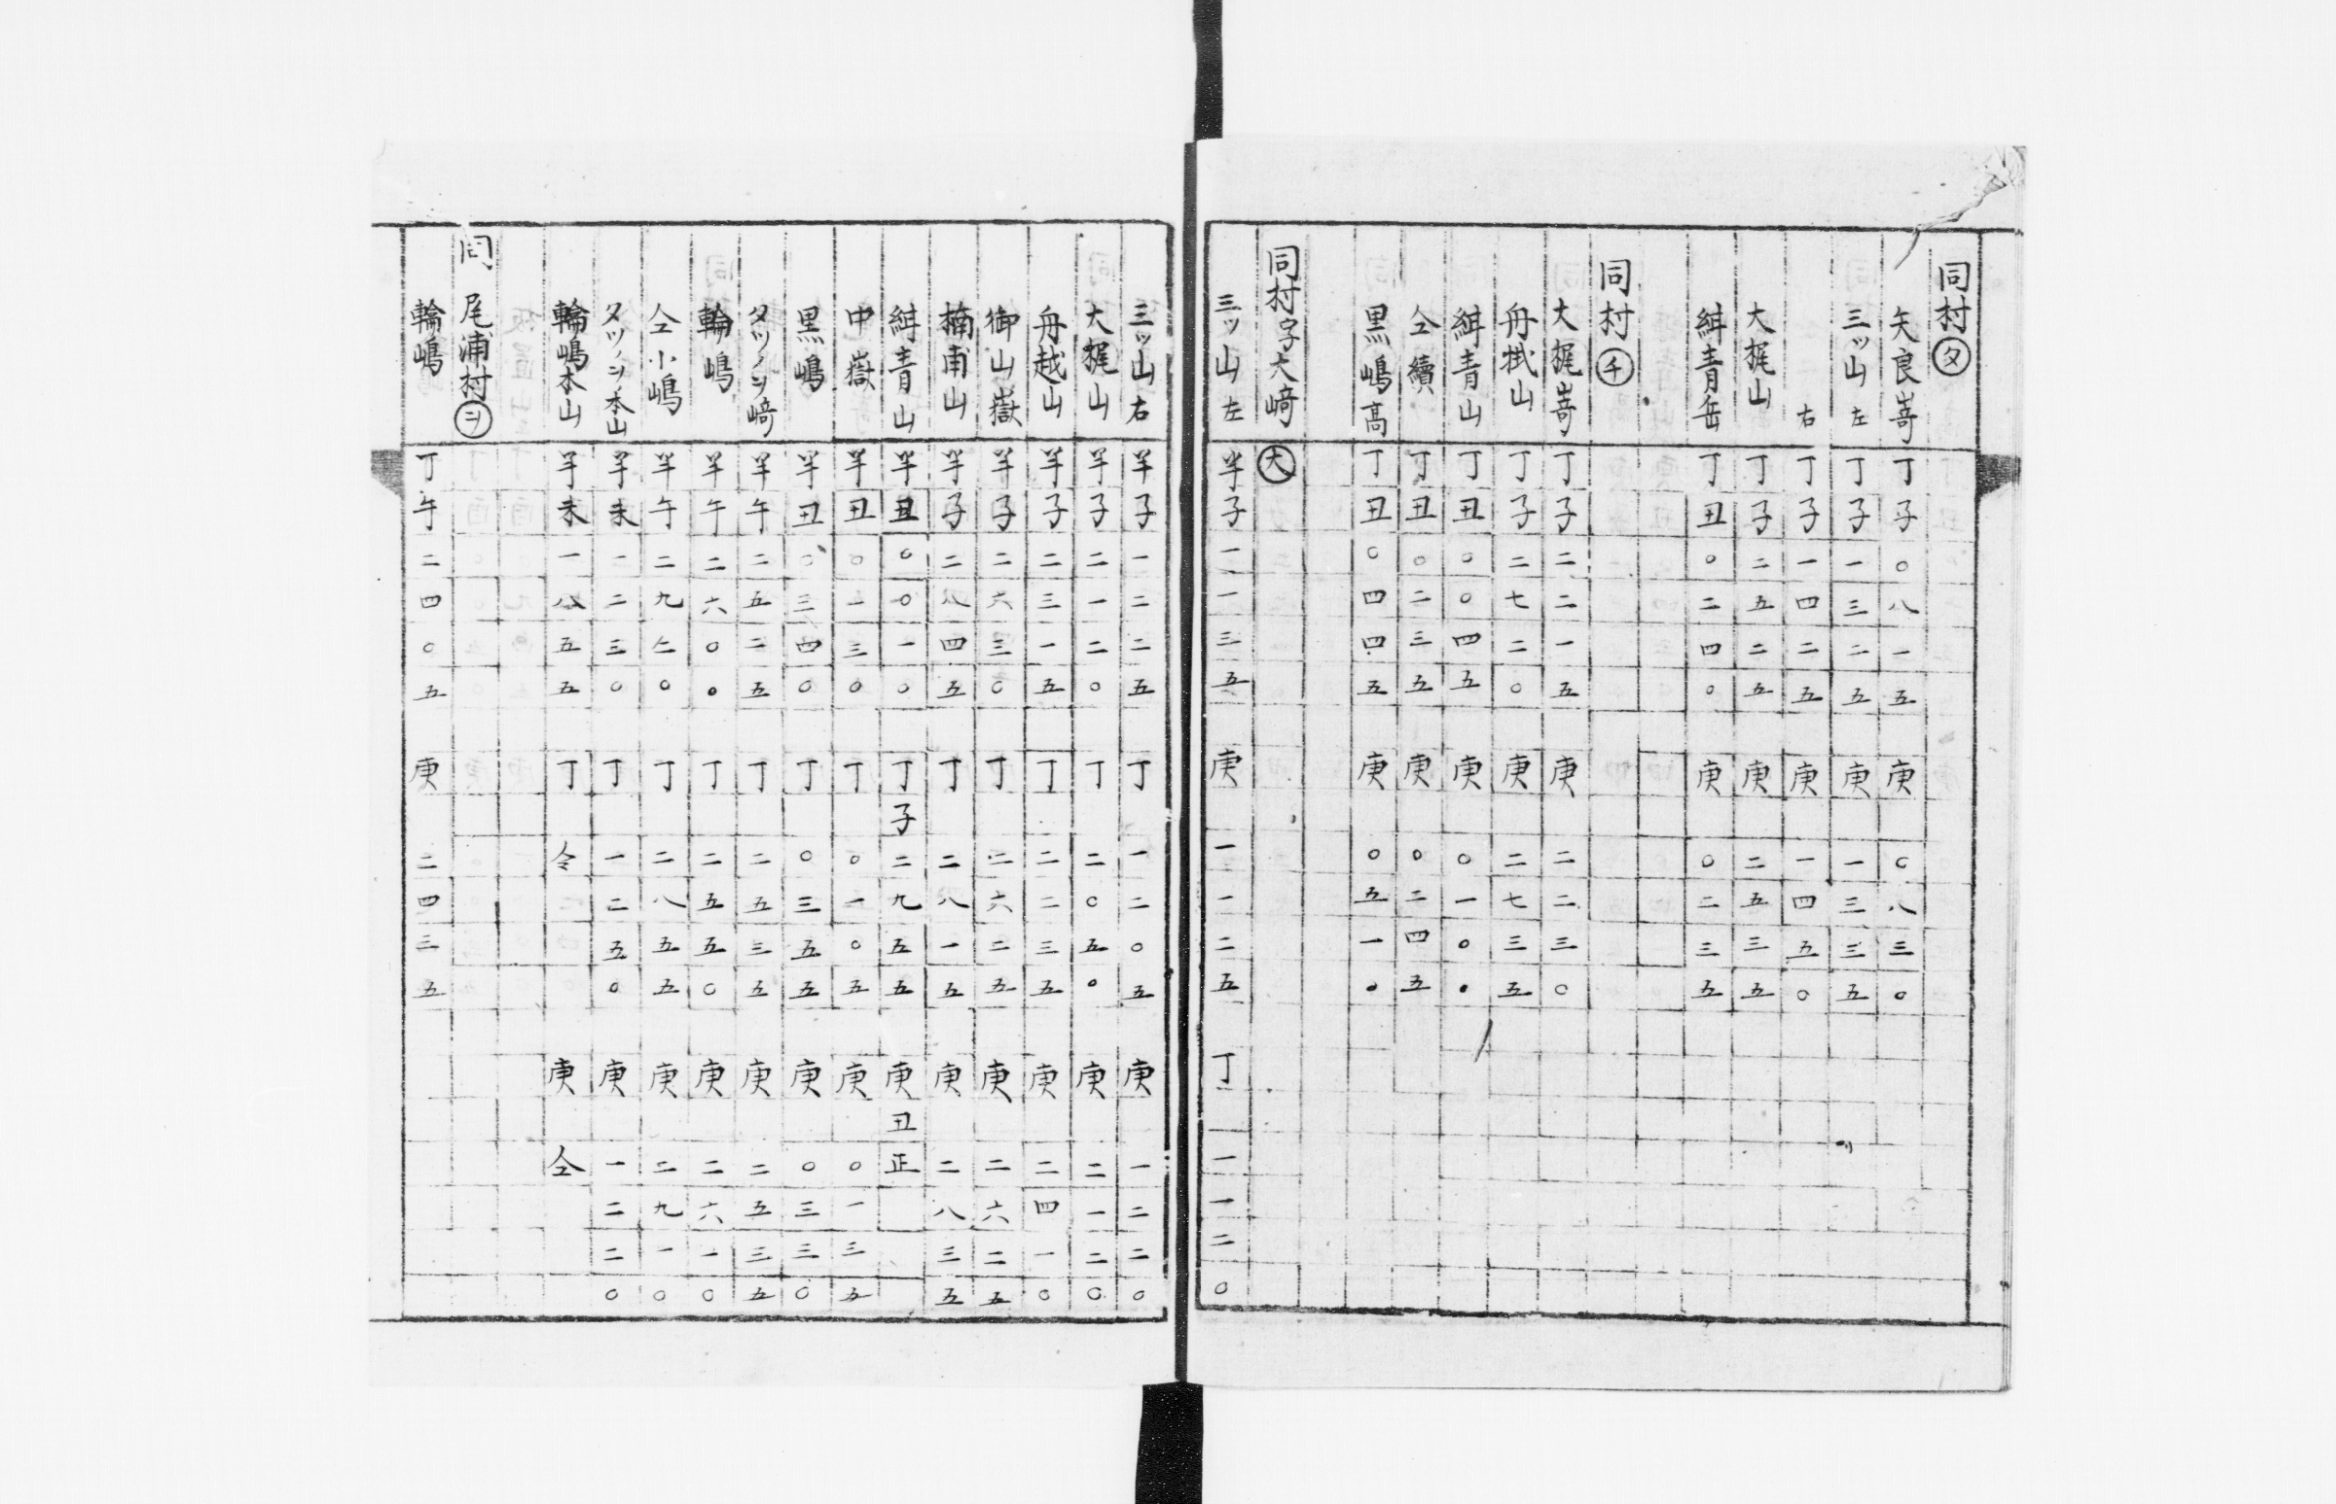 同村㋟
矢良嵜 丁子〇八一五 庚〇八三〇
三ッ山左 丁子一三二五 庚一三三五
右 丁子一四二五 庚一四五〇
大梶山 丁子二五二五 庚二五三五
青岳 丁丑〇二四〇 庚〇二三五
同村㋠
大梶嵜 丁子二二一五 庚二二三〇
舟掛山 丁子二七二〇 庚二七三五
青山 丁丑〇〇四五 庚〇一〇〇
仝續 丁丑〇二三五 庚〇二四五
黒嶋高 丁丑〇四四五 庚〇五一〇
同村字大﨑 大
三ッ山左 半子一一三五 庚一一二五 丁一一二〇
三ッ山右 半子一二二五 丁一二〇五 庚一二二〇
大梶山 半子二一二〇 丁二〇五〇 庚二一二〇
舟越山 半子二三一五 丁二二三五 庚二四一〇
御山嶽 半子二六三〇 丁二六二五 庚二六二五
楠甫山 半子二八四五 丁二八一五 庚二八三五
青山 半丑〇〇一〇 丁子二九五五 庚丑正
中嶽 半丑〇一三〇 丁〇一〇五 庚〇一三五
黒嶋 半丑〇三四〇 丁〇三五五 庚〇三三〇
タツノヲ﨑 半午二五二五 丁二五三五 庚二五三五
輪嶋 半午二六〇〇 丁二五五〇 庚二六一〇
仝小嶋 半午二九二〇 丁二八五五 庚二九一〇
タツノヲ本山 半未一二三〇 丁一二五〇 庚一二二〇
輪嶋本山 半未一八五五 丁仝 庚仝
同 尾浦村㋾
輪嶋 丁午二四〇五 庚二四三五